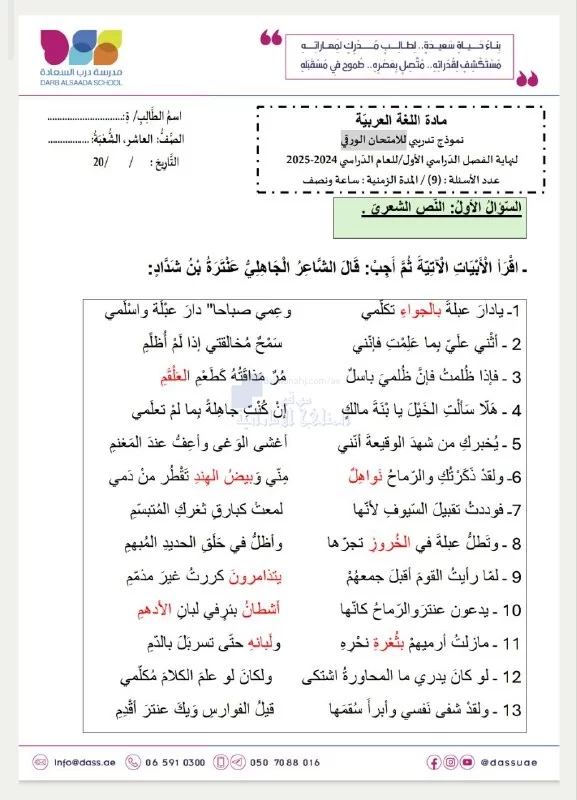 بناءُ حَـيـاةٍ سَعيدَةٍ.. لطالبٍ مُـدْرِكٍ لمَهاراتِهِ
مُسْتَكْشِفٍ لقُدُراتِهِ.. مُتَّصِلٍ بِعَصْرِهِ.. طَموحٍ في مُسْتَقْبَلِهِ
مدرسة درب السعادة
DARB ALSAADA SCHOOL
مادة اللغة العربيّة
نموذج تدريبي للامتحان الورقي
لنهاية الفصل الدّراسي الأول/للعام الدّراسي 2024-2025
عدد الأسئلة : (9) / المدة الزمنية : ساعة ونصف
اسمُ الطَّالِبِ/ ةِ:.............................
الصَّفُّ: العاشر، الشُّعْبَةُ:................
التَّاريخ : / /20
السّؤالُ الأولُ: النّص الشعريّ .
ـ اقْرَأ الْأَبْيَاتِ الْآتِيَةَ ثُمَّ أَجِبْ: قَالَ الشَّاعرُ الْجَاهِلِيُّ عَنْتَرَةُ بْنُ شَدَّادٍ:
1- يادارَ عبلةَ بالجواءِ تكلّمي وعِمي صباحا" دارَ عبْلَة واسْلَمي
2 - أثْني علَيّ بِما عَلِمْتِ فإنّني سَمْحٌ مُخالقتي إذا لمْ أُظلَمِ
3 - فإذا ظُلمتُ فإنَّ ظُلميَ باسلٌ مُرٌ مَذاقَتُهُ كَطَعْمِ العَلْقَمِ
4 - هَلّا سَألْتِ الخَيْلَ يا بْنَةَ مالكٍ إنْ كُنْتِ جاهِلةً بِما لمْ تعلَمي
5 - يُخبركِ من شهدَ الوقيعةَ أنّني أغشى الوَغى وأعِفُّ عندَ المَغنمِ
6- ولقدْ ذَكَرْتُكِ والرّماحُ نَواهِلٌ مِنّي وَبيضُ الهِندِ تَقْطُر منْ دَمي
7- فوددتُ تقبيلَ السّيوفِ لأنّها لمعتْ كبارقِ ثغركِ المُتبسّمِ
8 - وتَظلُّ عبلةَ في الخُروزِ تجرّها وأظلُّ في حَلَقِ الحديدِ المُبهمِ
9 - لمّا رأيتُ القومَ أقبلَ جمعهُمْ يتذامرونَ كررتُ غيرَ مذمّمِ
10 - يدعون عنترَوالرّماحُ كانّها أشطانُ بئرٍفي لبانِ الأدهمِ
11 - مازلتُ أرميهمْ بثُغرةِ نحْرِهِ ولَبانِهِ حتّى تسربَلَ بالدّمِ
12 - لو كانَ يدري ما المحاورةُ اشتكى ولكانَ لو علمَ الكلامَ مُكلّمي
13 - ولقدْ شفى نَفسي وأبرأَ سُقمَها قيلُ الفوارسِ وَيكَ عنترَ أقْدِمِ
info@dass.ae 06 591 0300 050 7088 016 @dassuae